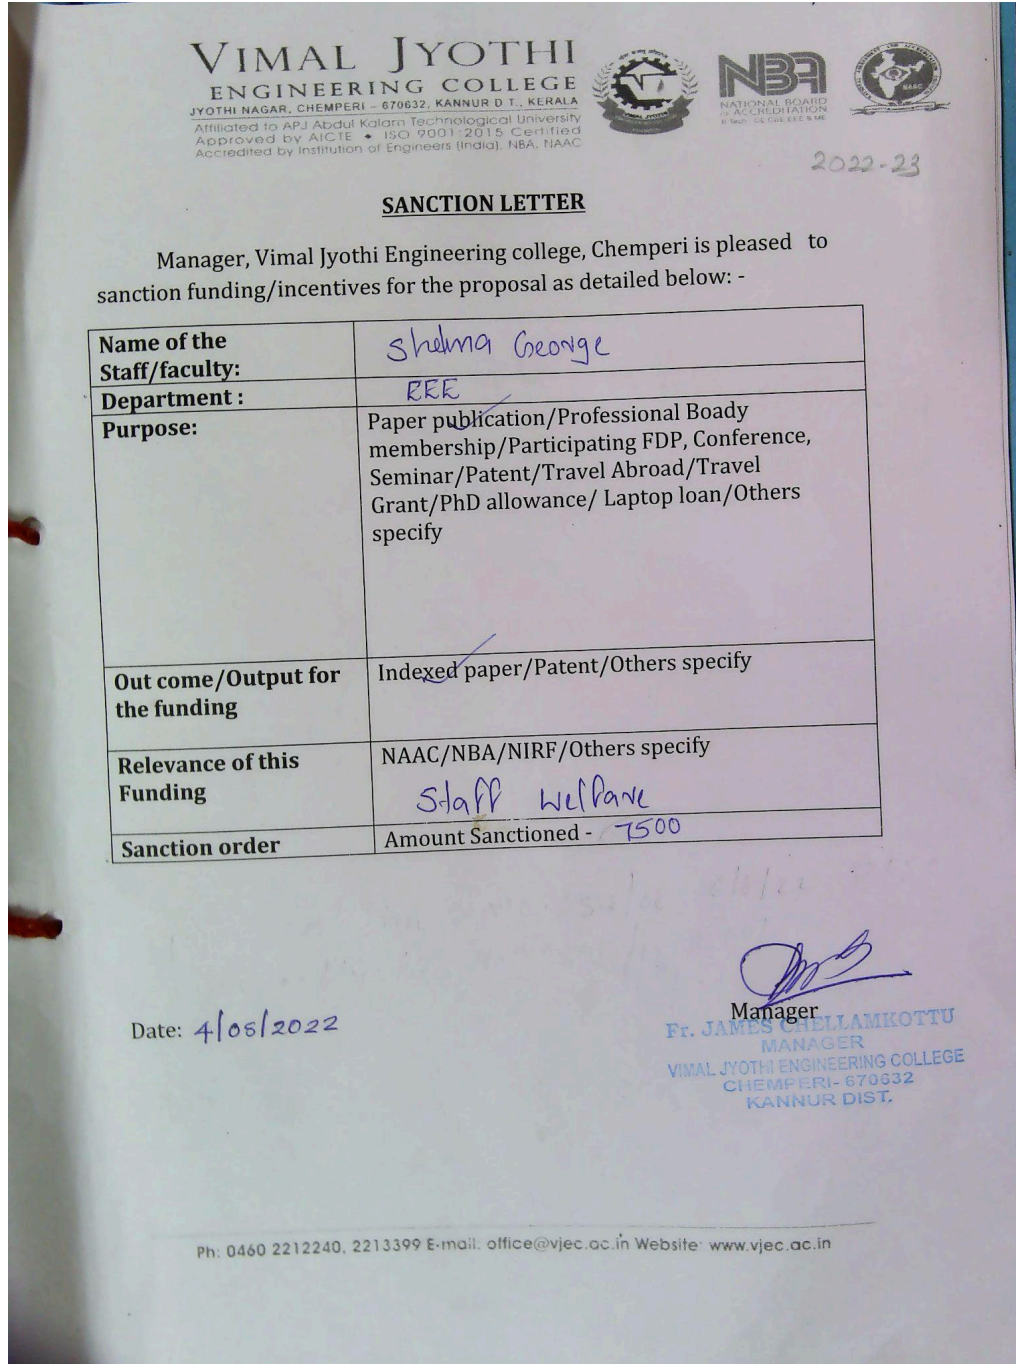 VIMAL JYOTHI
ENGINEERING COLLEGE
JYOTHI NAGAR, CHEMPERI - 670632, KANNUR D T., KERALA
Affiliated to APJ Abdul Kalam Technological University
Approved by AICTE • ISO 9001:2015 Certified
Accredited by Institution of Engineers (India), NBA, NAAC
NBA
NATIONAL BOARD
OF ACCREDITATION
2022-23
SANCTION LETTER
Manager, Vimal Jyothi Engineering college, Chemperi is pleased to
sanction funding/incentives for the proposal as detailed below: -
Name of the
Staff/faculty:
Shelma George
Department :
EEE
Purpose:
Paper publication/Professional Boady
membership/Participating FDP, Conference,
Seminar/Patent/Travel Abroad/Travel
Grant/PhD allowance/ Laptop loan/Others
specify
Out come/Output for
the funding
Indexed paper/Patent/Others specify
Relevance of this
Funding
NAAC/NBA/NIRF/Others specify
Staff Welfare
Sanction order
Amount Sanctioned - 7500
Date: 4/08/2022
Manager
Fr. JAMES CHELLAMKOTTU
MANAGER
VIMAL JYOTHI ENGINEERING COLLEGE
CHEMPERI- 670632
KANNUR DIST.
Ph: 0460 2212240, 2213399 E-mail: office@vjec.ac.in Website: www.vjec.ac.in